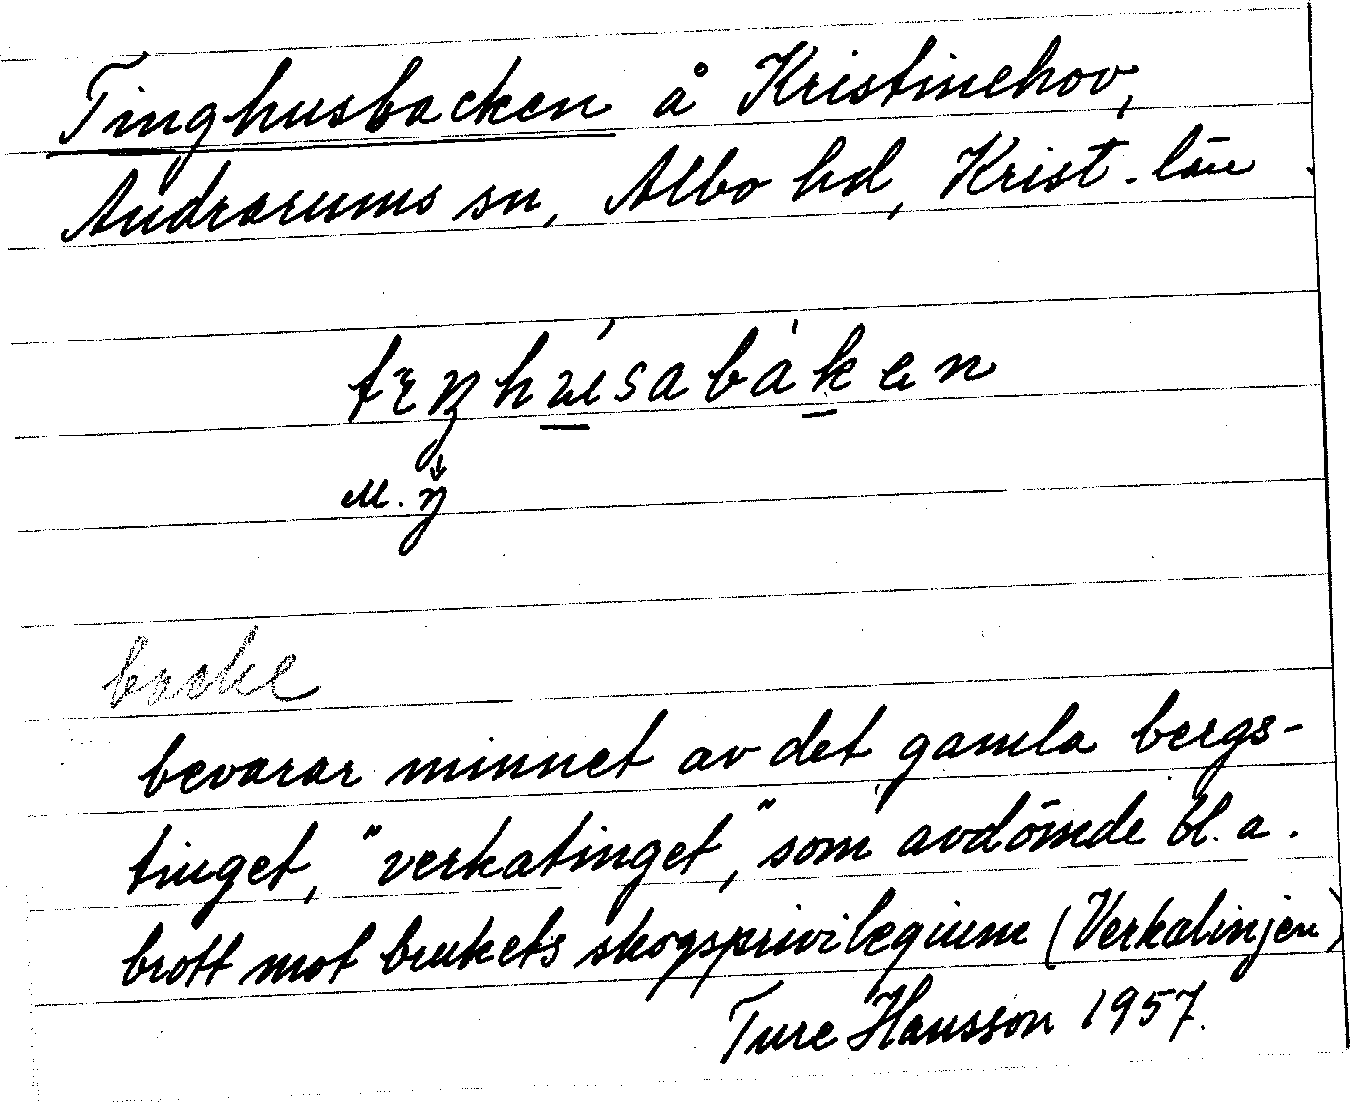 Tinghusbacken å Kristinehov,
Andrarums sn, Albo hd, Krist.län.
M. ŋ
backe
bevarar minnet av det gamla bergs-
tinget, "verkatinget," som avdömde bl.a.
brott mot brukets skogsprivilegium (Verkalinjen)
Ture Hansson 1957.